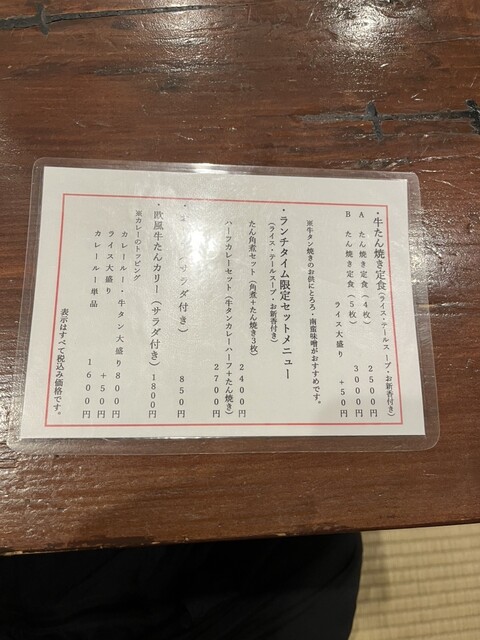 ・牛たん焼き定食(ライス・テールスープ・お新香付き)
A たん焼き定食(4枚) 2500円
B たん焼き定食(5枚) 3000円
ライス大盛り +50円
※牛タン焼きのお供にとろろ・南蛮味噌がおすすめです。
・ランチタイム限定セットメニュー
(ライス・テールスープ・お新香付き)
たん角煮セット(角煮+たん焼き3枚) 2400円
ハーフカレーセット(牛タンカレーハーフ+たん焼き) 2700円
サラダ付き) 850円
・欧風牛たんカリー(サラダ付き) 1800円
※カレーのトッピング
カレールー・牛タン大盛り 800円
ライス大盛り +50円
カレールー単品 1600円
表示はすべて税込み価格です。